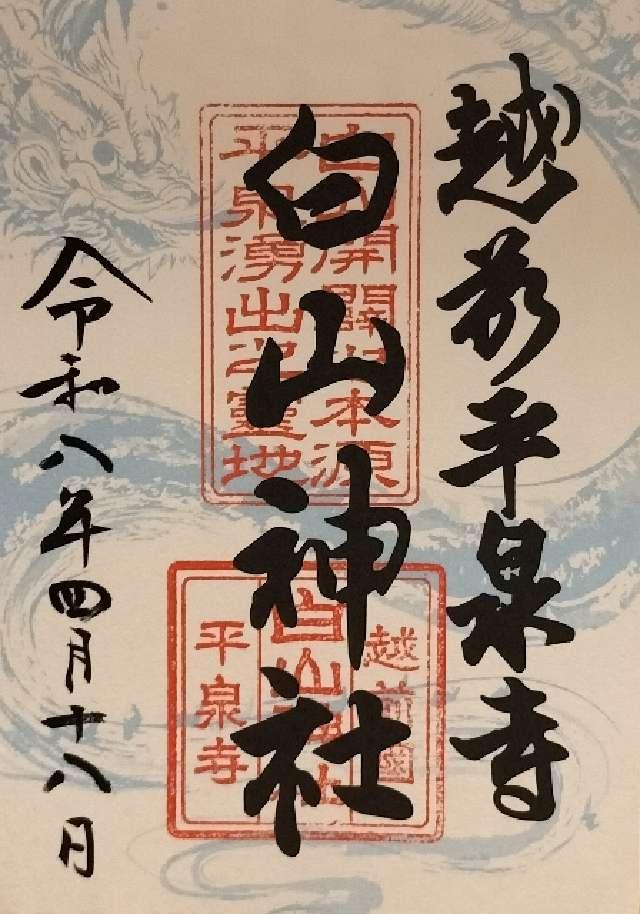 越前平泉寺
白山神社
令和八年四月十八日
開闢
本源
平泉湧出之靈地
越前國
白山神社
平泉寺